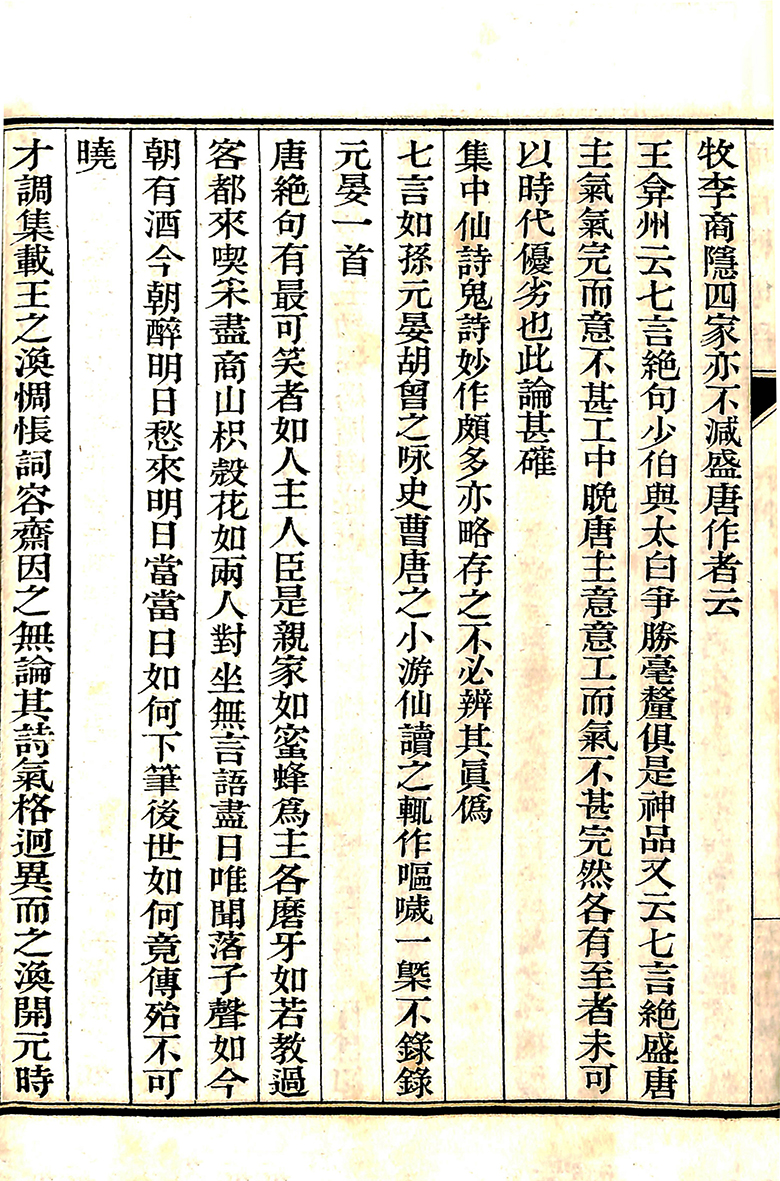 牧李商隱四家亦不減盛唐作者云
王弇州云七言絶句少伯與太白爭勝毫釐俱是神品又云七言絶盛唐
主氣氣完而意不甚工中晚唐主意意工而氣不甚完然各有至者未可
以時代優劣也此論甚確
集中仙詩鬼詩妙作頗多亦略存之不必辨其眞僞
七言如孫元晏胡曾之咏史曹唐之小游仙讀之輒作嘔噦一槩不錄錄
元晏一首
唐絶句有最可笑者如人主人臣是親家如蜜蜂爲主各磨牙如若教過
客都來喫采盡商山枳殻花如兩人對坐無言語盡日唯聞落子聲如今
朝有酒今朝醉明日愁來明日當當日如何下筆後世如何竟傳殆不可
曉
才調集載王之渙惆悵詞容齋因之無論其詩氣格迥異而之渙開元時